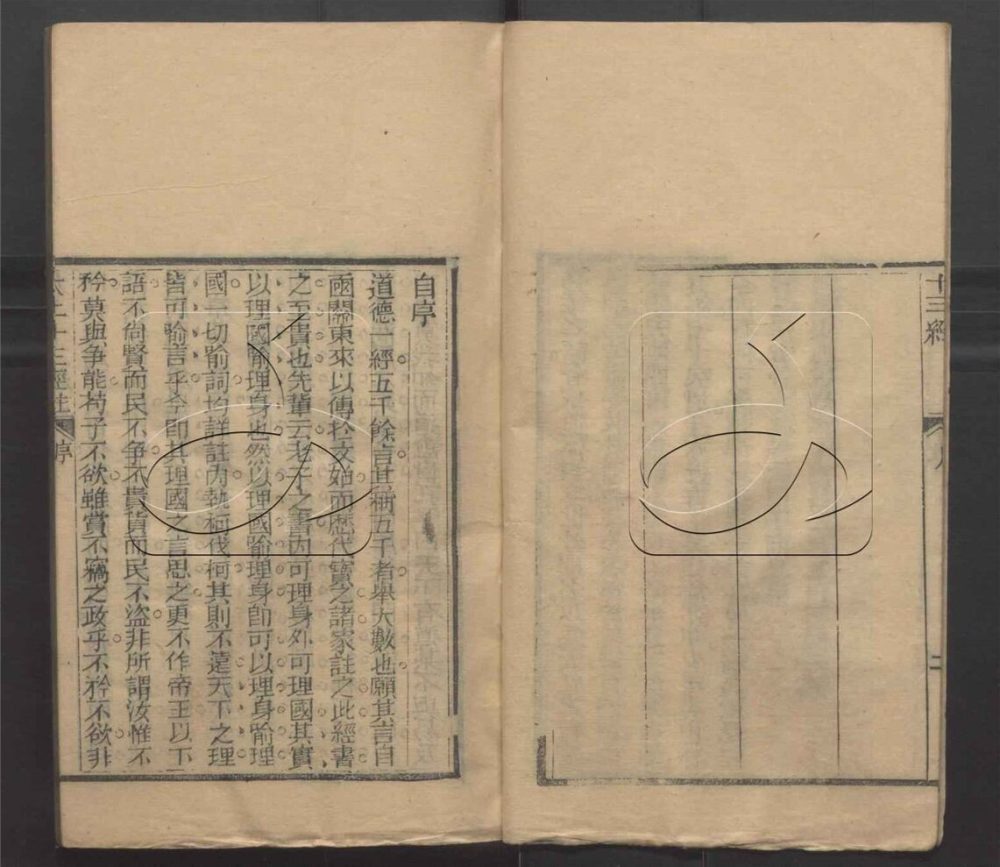 十三經
二
自序
道德一經五千餘言其稱五千者舉大數也願其言自
函關東來以傳於文始而歷代寶之諸家註之此經書
之至貴也先輩云老子之書內可理身外可理國其實
以理國喻理身也然以理國喻理身卽可以理身喻理
國一切喻詞均詳註內執柯伐柯其則不遠天下之理
皆可喻言乎今卽其理國之言思之更不作帝王以下
語不尙賢而民不爭不貴貨而民不盜非所謂汝惟不
矜莫與爭能苟子不欲雖賞不竊之政乎不矜不欲非
十三經註
序